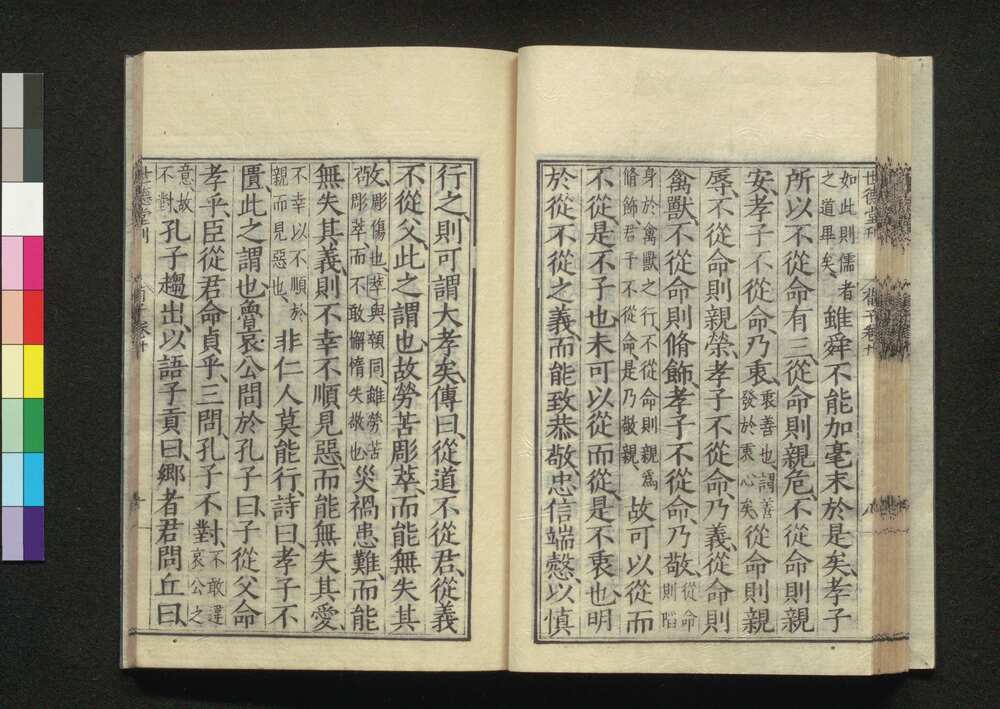 世德堂刊
如此則儒者之道畢矣雖舜不能加毫末於是矣孝子
所以不從命有三從命則親危不從命則親
安孝子不從命乃衷衷善也謂善發於衷心矣從命則親
辱不從命則親榮孝子不從命乃義從命則
禽獸不從命則脩飾孝子不從命乃敬從命則陷
身於禽獸之行不從命則親爲脩飾君子不從命是乃敬親故可以從而
不從是不子也未可以從而從是不衷也明
於從不從之義而能致恭敬忠信端慤以慎
行之則可謂大孝矣傳曰從道不從君從義
不從父此之謂也故勞苦彫萃而能無失其
敬彫傷也萃與顇同雖勞苦彫萃而不敢懈惰失敬也災禍患難而能
無失其義則不幸不順見惡而能無失其愛
不幸以不順於親而見惡也非仁人莫能行詩曰孝子不
匱此之謂也魯哀公問於孔子曰子從父命
孝乎臣從君命貞乎三問孔子不對不敢違哀公之
意故不對孔子趨出以語子貢曰鄉者君問丘曰
世德堂刊
荀子卷十